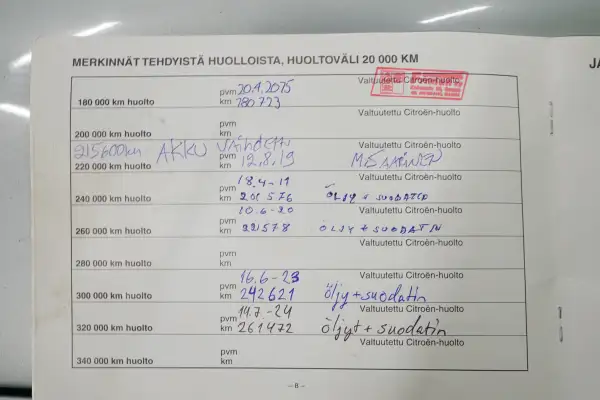 MERKINNÄT TEHDYISTÄ HUOLLOISTA, HUOLTOVÄLI 20 000 KM
JA
pvm 20.4.2015 Valtuutettu Citroën-huolto
180 000 km huolto km 180 773
pvm Valtuutettu Citroën-huolto
200 000 km huolto km
215600km AKKU VAIHDETTU Valtuutettu Citroën-huolto
pvm 12.8.19
220 000 km huolto km
18.4-19 Valtuutettu Citroën-huolto
pvm
240 000 km huolto km 201 576 ÖLJY + SUODATIN
10.6-20 Valtuutettu Citroën-huolto
pvm
260 000 km huolto km 221578 ÖLJY + SUODATIN
Valtuutettu Citroën-huolto
pvm
280 000 km huolto km
16.6-23 Valtuutettu Citroën-huolto
pvm
300 000 km huolto km 242621 öljy+suodatin
pvm 14.7.-24 Valtuutettu Citroën-huolto
320 000 km huolto km 261472 öljyt + suodatin
Valtuutettu Citroën-huolto
pvm
340 000 km huolto km
– 8 –